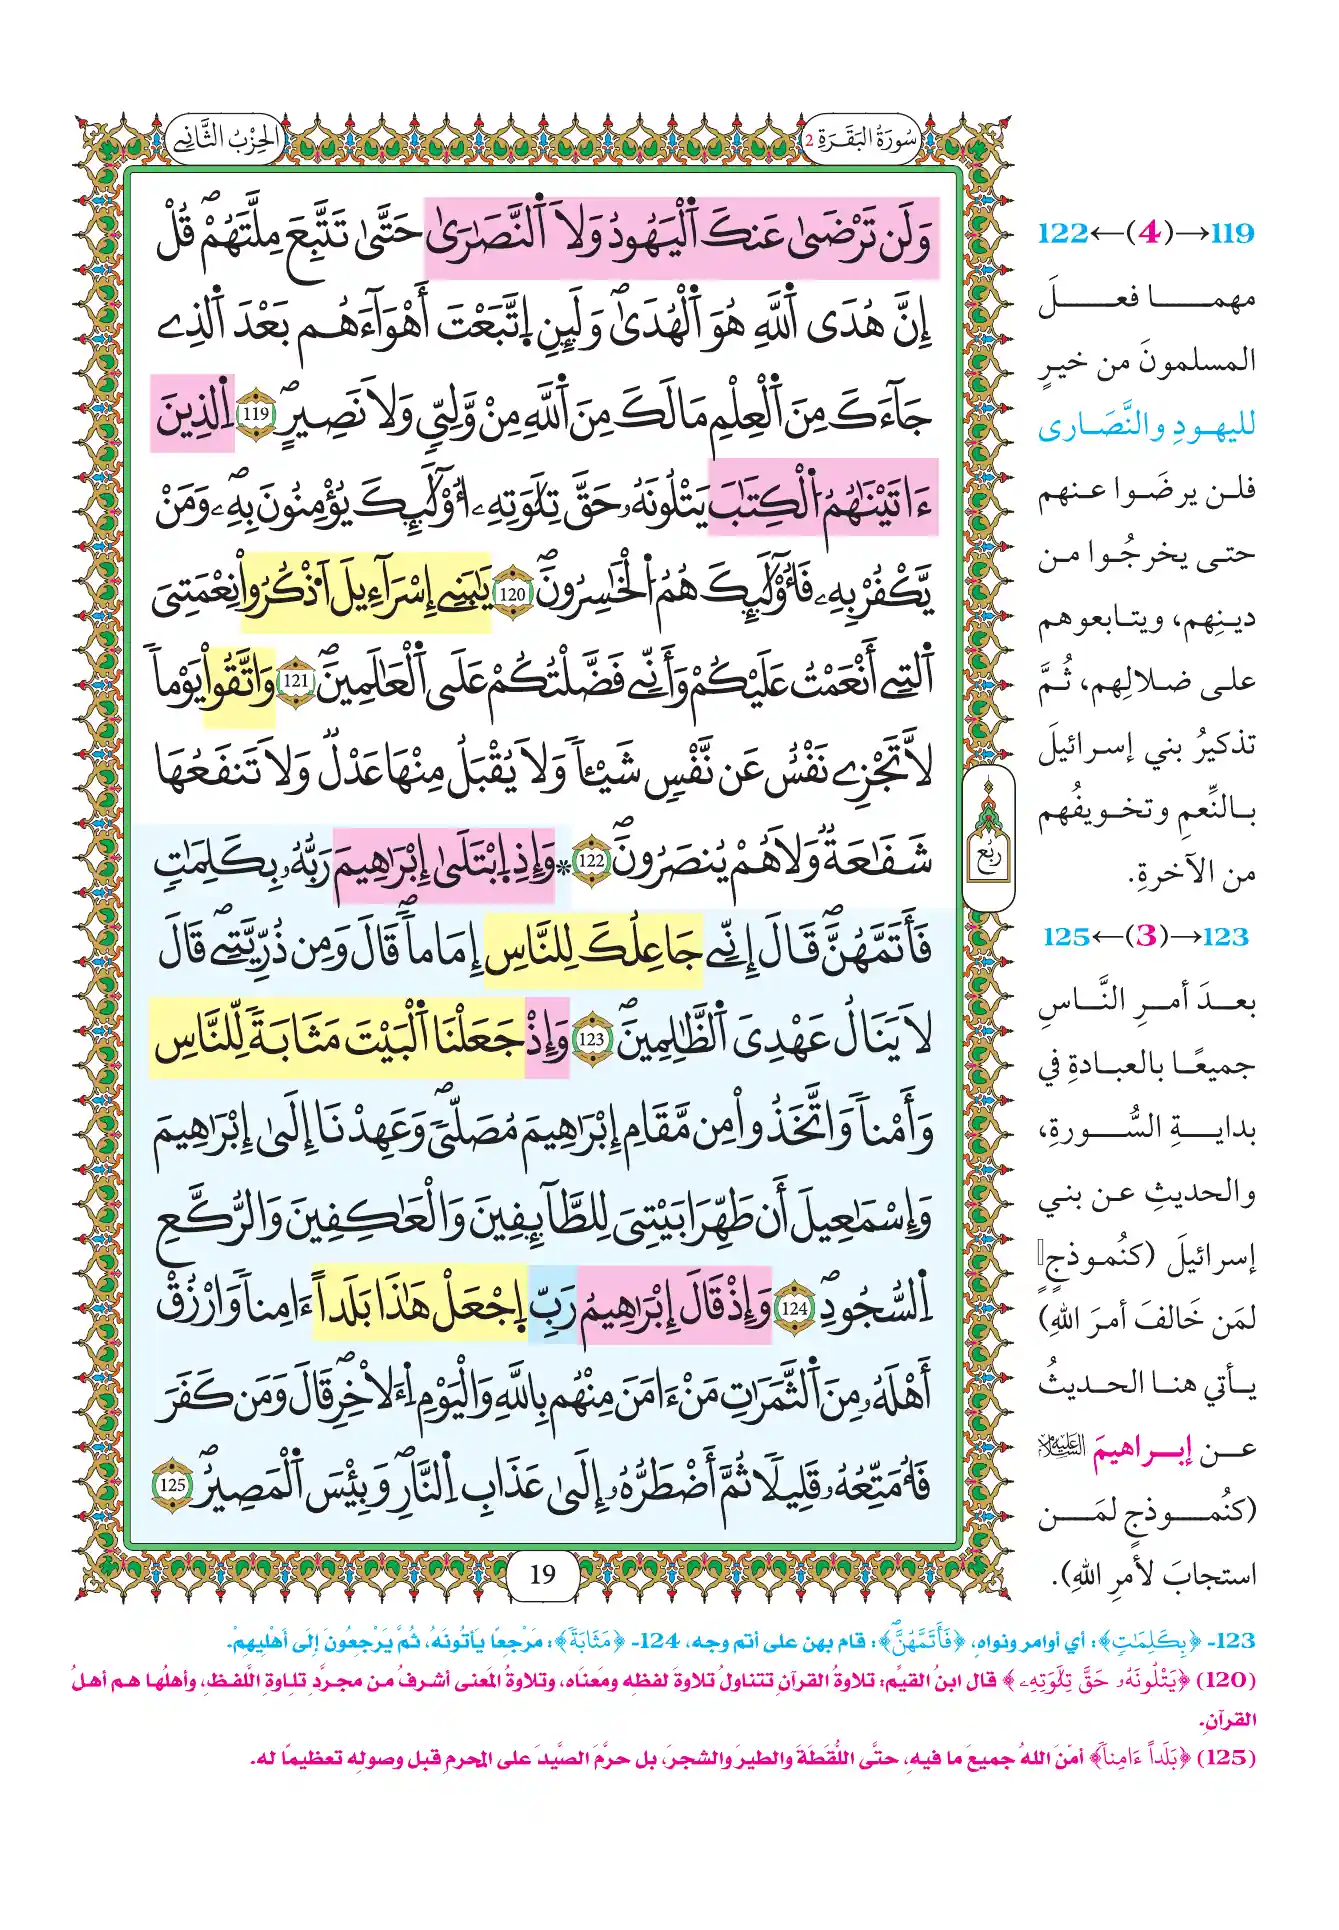 سُورَةُ البَقَرَةِ 2
الحِزْبُ الثَّانِي
وَلَن تَرْضَىٰ عَنكَ اَ۬لْيَهُودُ وَلَا اَ۬لنَّصَٰرَىٰ حَتَّىٰ تَتَّبِعَ مِلَّتَهُمْۖ قُلْ
إِنَّ هُدَى اَ۬للَّهِ هُوَ اَ۬لْهُدَىٰۖ وَلَئِنِ اِ۪تَّبَعْتَ أَهْوَآءَهُم بَعْدَ اَ۬لذِے
جَآءَكَ مِنَ اَ۬لْعِلْمِ مَا لَكَ مِنَ اَ۬للَّهِ مِنْ وَّلِيّٖ وَلَا نَصِيرٍۖ 119 اِ۬لذِينَ
ءَاتَيْنَٰهُمُ اُ۬لْكِتَٰبَ يَتْلُونَهُۥ حَقَّ تِلَٰوَتِهِۦٓ أُوْلَٰٓئِكَ يُؤْمِنُونَ بِهِۦۖ وَمَنْ
يَّكْفُرْ بِهِۦ فَأُوْلَٰٓئِكَ هُمُ اُ۬لْخَٰسِرُونَۖ 120 يَٰبَنِےٓ إِسْرَآءِيلَ اَ۟ذْكُرُواْ نِعْمَتِيَ
اَ۬لتِےٓ أَنْعَمْتُ عَلَيْكُمْ وَأَنِّے فَضَّلْتُكُمْ عَلَى اَ۬لْعَٰلَمِينَۖ 121 وَاتَّقُواْ يَوْماٗ
لَّا تَجْزِے نَفْسٌ عَن نَّفْسٖ شَيْـٔاٗ وَلَا يُقْبَلُ مِنْهَا عَدْلٞ وَلَا تَنفَعُهَا
شَفَٰعَةٞ وَلَا هُمْ يُنصَرُونَۖ 122 * وَإِذِ اِ۪بْتَلَىٰٓ إِبْرَٰهِيمَ رَبُّهُۥ بِكَلِمَٰتٖ
فَأَتَمَّهُنَّۖ قَالَ إِنِّے جَاعِلُكَ لِلنَّاسِ إِمَاماٗۖ قَالَ وَمِن ذُرِّيَّتِےۖ قَالَ
لَا يَنَالُ عَهْدِي اَ۬لظَّٰلِمِينَۖ 123 وَإِذْ جَعَلْنَا اَ۬لْبَيْتَ مَثَابَةٗ لِّلنَّاسِ
وَأَمْناٗ وَاتَّخَذُواْ مِن مَّقَامِ إِبْرَٰهِيمَ مُصَلّٗىۖ وَعَهِدْنَآ إِلَىٰٓ إِبْرَٰهِيمَ
وَإِسْمَٰعِيلَ أَن طَهِّرَا بَيْتِيَ لِلطَّآئِفِينَ وَالْعَٰكِفِينَ وَالرُّكَّعِ
اِ۬لسُّجُودِۖ 124 وَإِذْ قَالَ إِبْرَٰهِيمُ رَبِّ اِ۪جْعَلْ هَٰذَا بَلَداً ءَامِناٗ وَارْزُقْ
أَهْلَهُۥ مِنَ اَ۬لثَّمَرَٰتِ مَنْ ءَامَنَ مِنْهُم بِاللَّهِ وَالْيَوْمِ اِ۬لَاخِرِۖ قَالَ وَمَن كَفَرَ
فَأُمَتِّعُهُۥ قَلِيلاٗ ثُمَّ أَضْطَرُّهُۥٓ إِلَىٰ عَذَابِ اِ۬لنَّارِۖ وَبِئْسَ اَ۬لْمَصِيرُۖ 125
رُبُع
19
119→(4)←122
مهمــا فعــلَ
المسلمونَ من خيرٍ
لليهودِ والنَّصَارى
فلن يرضَوا عنهم
حتى يخرجُوا من
دينِهم، ويتابعوهم
على ضلالِهم، ثُمَّ
تذكيرُ بني إسرائيلَ
بالنِّعمِ وتخويفُهم
من الآخرةِ.
123→(3)←125
بعدَ أمرِ النَّاسِ
جميعًا بالعبادةِ في
بدايةِ السُّورةِ،
والحديثِ عن بني
إسرائيلَ (كنُموذجٍ
لمَن خَالفَ أمرَ اللهِ)
يأتي هنا الحديثُ
عن إبراهيمَ عليه السلام
(كنُموذجٍ لمَن
استجابَ لأمرِ اللهِ).
123- ﴿بِكَلِمَٰتٖ﴾: أي أوامر ونواهٍ، ﴿فَأَتَمَّهُنَّۖ﴾: قام بهن على أتم وجه، 124- ﴿مَثَابَةٗ﴾: مَرْجِعًا يَأتُونَهُ، ثُمَّ يَرْجِعُونَ إِلَى أَهْلِيهِمْ.
(120) ﴿يَتْلُونَهُۥ حَقَّ تِلَٰوَتِهِۦٓ﴾ قال ابنُ القيِّم: تلاوةُ القرآنِ تتناولُ تلاوةَ لفظِه ومَعنَاه، وتلاوةُ المَعنى أشرفُ من مجرَّدِ تلاوةِ اللَّفظِ، وأهلُها هم أهلُ
القرآنِ.
(125) ﴿بَلَداً ءَامِناٗ﴾ أمّنَ اللهُ جميعَ ما فيهِ، حتَّى اللُّقَطَةَ والطيرَ والشجرَ، بل حرَّمَ الصَّيدَ على المحرمِ قبل وصولِه تعظيمًا له.